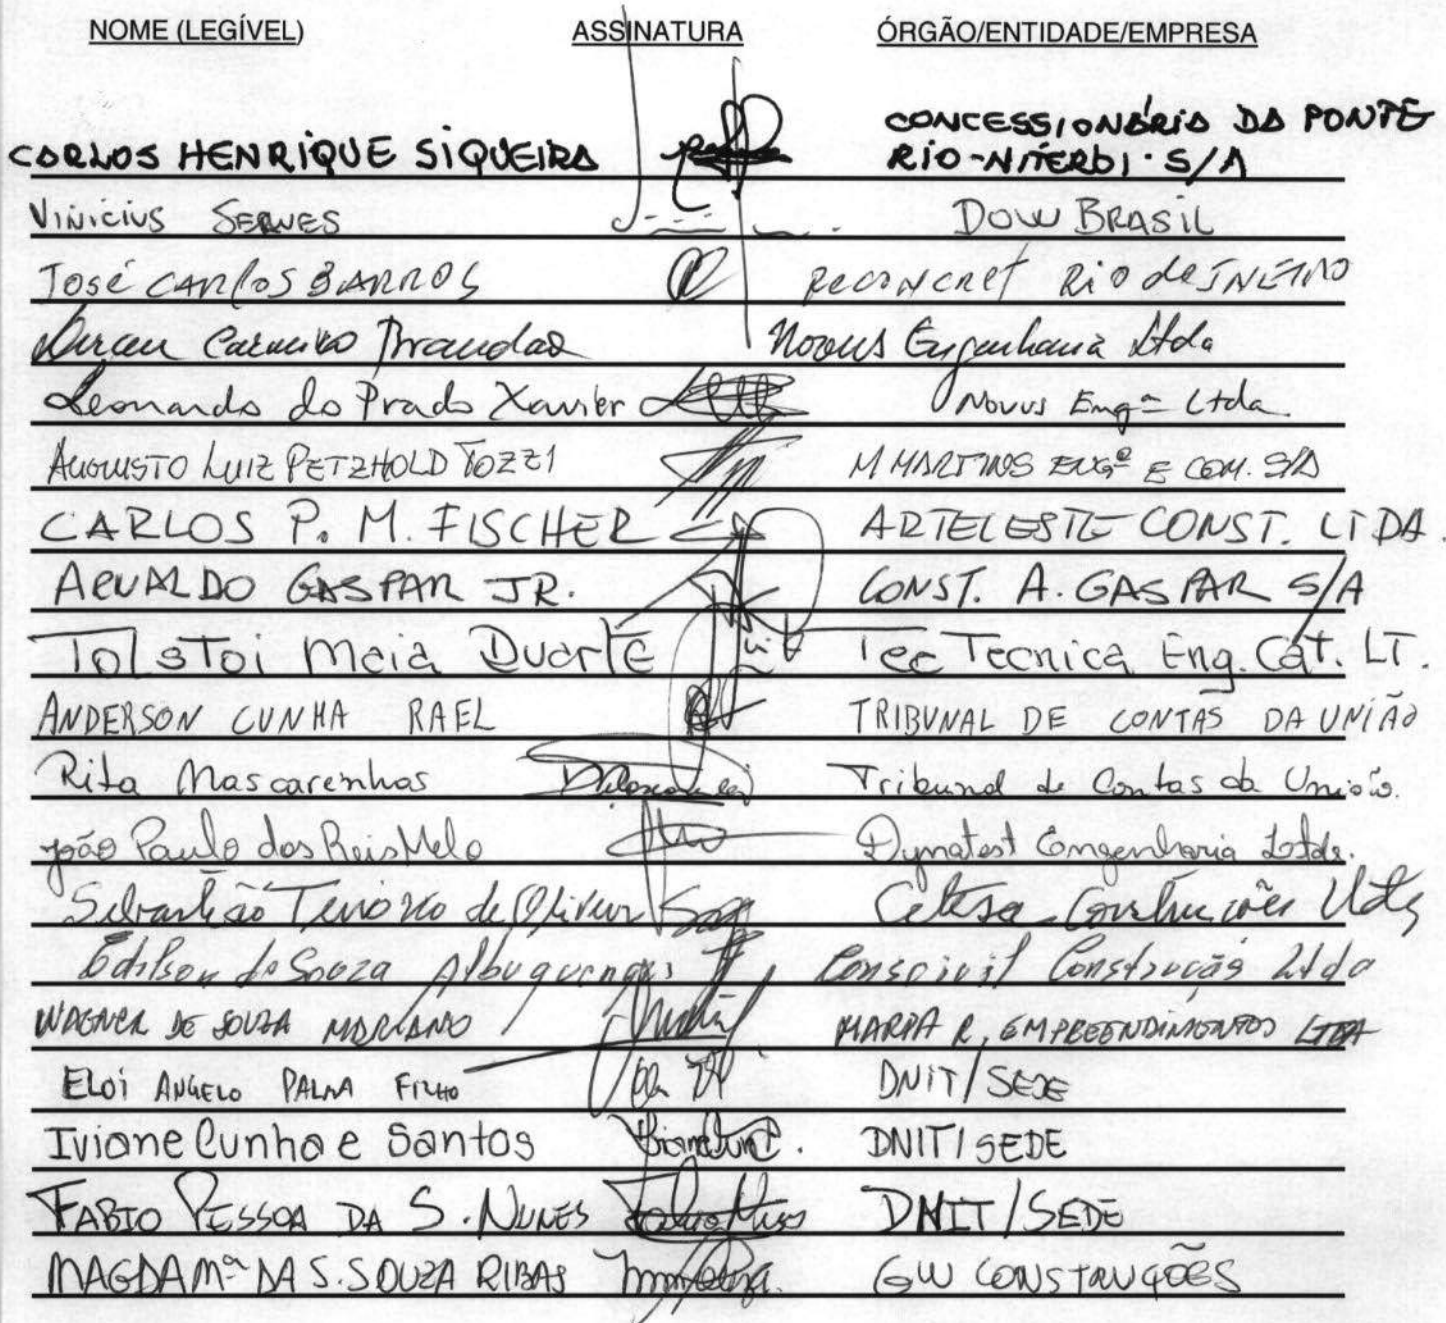 NOME (LEGÍVEL) ASSINATURA ÓRGÃO/ENTIDADE/EMPRESA
CARLOS HENRIQUE SIQUEIRA CONCESSIONÁRIA DA PONTE
RIO-NITERÓI S/A
VINICIUS SERVES DOW BRASIL
José CARLOS BARROS Reconcret Rio de JANEIRO
Carneiro Brandão Novus Engenharia Ltda
Leonardo do Prado Xavier Novus Engª Ltda.
AUGUSTO LUIZ PETZHOLD TOZZI M MARTINS ENGª E COM. S/A
CARLOS P. M. FISCHER ARTELESTE CONST. LTDA.
ARVALDO GASPAR JR. CONST. A. GASPAR S/A
Tolstoi Maia Duarte Tec Tecnica Eng. Cat. LT.
ANDERSON CUNHA RAEL TRIBUNAL DE CONTAS DA UNIÃO
Rita Mascarenhas Tribunal de Contas da União.
João Paulo dos Reis Melo Dynatest Engenharia Ltda.
Sebastião Tenório de Oliveira Construções Ltda
Edilson de Souza Albuquerque Construção Ltda
WAGNER DE SOUZA MARIANO MARIA R. EMPREENDIMENTOS LTDA
ELOI ANGELO PALMA FILHO DNIT/SEDE
Ivione Cunha e Santos DNIT/SEDE
FABIO PESSOA DA S. NUNES DNIT/SEDE
MAGDA Mª DA S. SOUZA RIBAS GW CONSTRUÇÕES